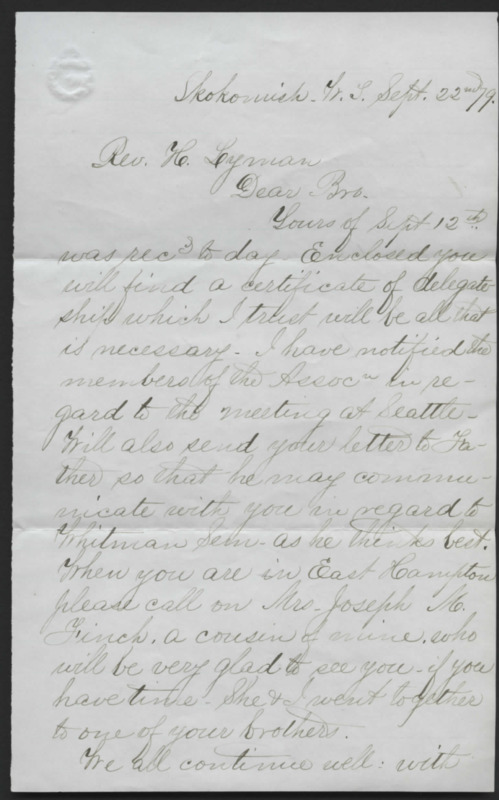 Skokomish. W. T. Sept. 22nd/79.
Rev. H. Lyman
Dear Bro.
Yours of Sept 12th
was recd to day Enclosed you
will find a certificate of delegate
ship which I trust will be all that
is necessary - I have notified the
members of the Assocn in re-
gard to the meeting at Seattle -
Will also send your letter to Fa-
ther so that he may commu-
nicate with you in regard to
Whitman Sem - as he thinks best.
When you are in East Hampton
please call on Mrs. Joseph M.
Finch. a cousin of mine. who
will be very glad to see you - if you
have time - She & I went together
to one of your brothers.
We all continue well: with